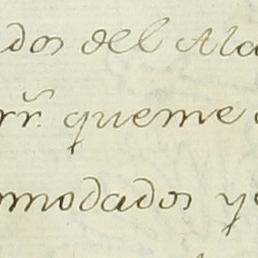 dos del Ala
rr. queme
mmodados y